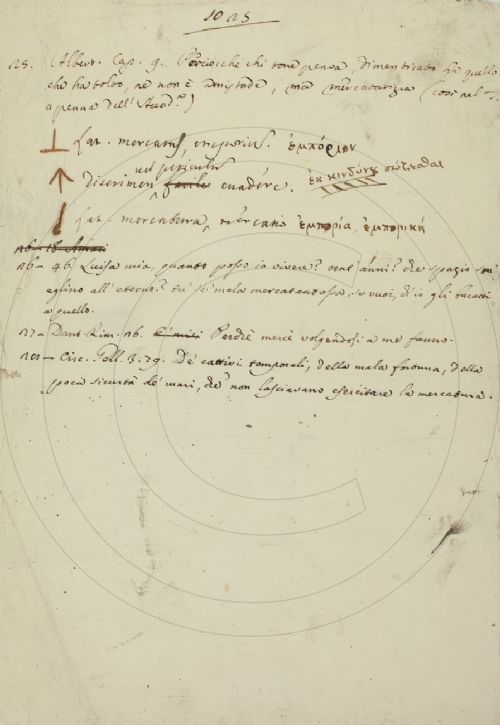 1023
23. Albert. Cap. 9. Perciocchè chi dona pensa, dimenticato ha quello
che ha tolto, nè non è amistade, ma mercatanzia (così nel
a penna dell' Accad.)
Lat. mercatus, emporium. ἐμπόριον
vel periculum
Discrimen facile evadere. ἐκ κινδύνου σώζεσθαι
Lat. mercatura, mercatio ἐμπορία, ἐμπορική
26 - 46. Luisa mia, quanto posso io vivere? cent' anni? che spazio
eglino all' eterno? tu se' mala mercatantessa, se vuoi, ch' io gli baratti
a quello.
27 - Dant. Rim. 26. Perdiè mercè volgendosi a me fanno.
Circ. Gell. 3. 79. De' cattivi temporali, della mala fortuna, della
poca sicurtà de' mari, che non lasciavano esercitare la mercatura.